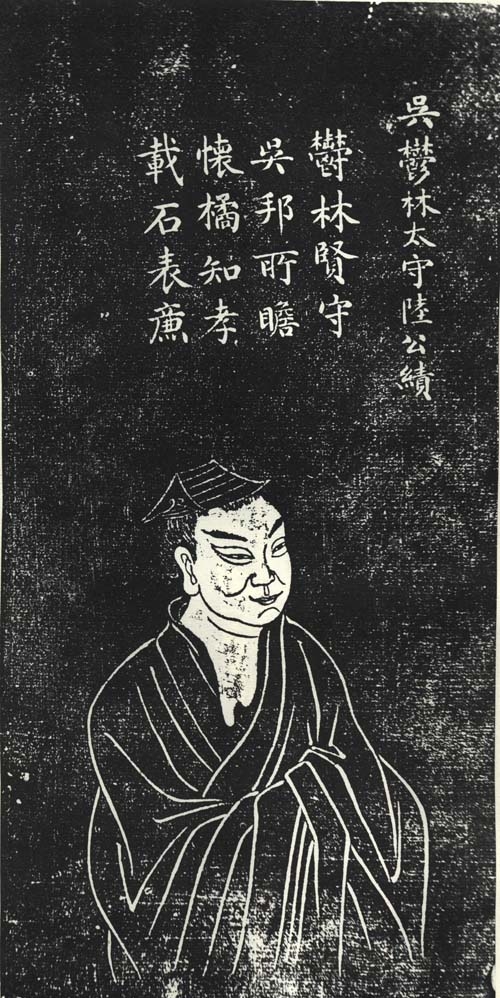 吳鬱林太守陸公績
鬱林賢守
吳邦所瞻
懷橘知孝
載石表廉